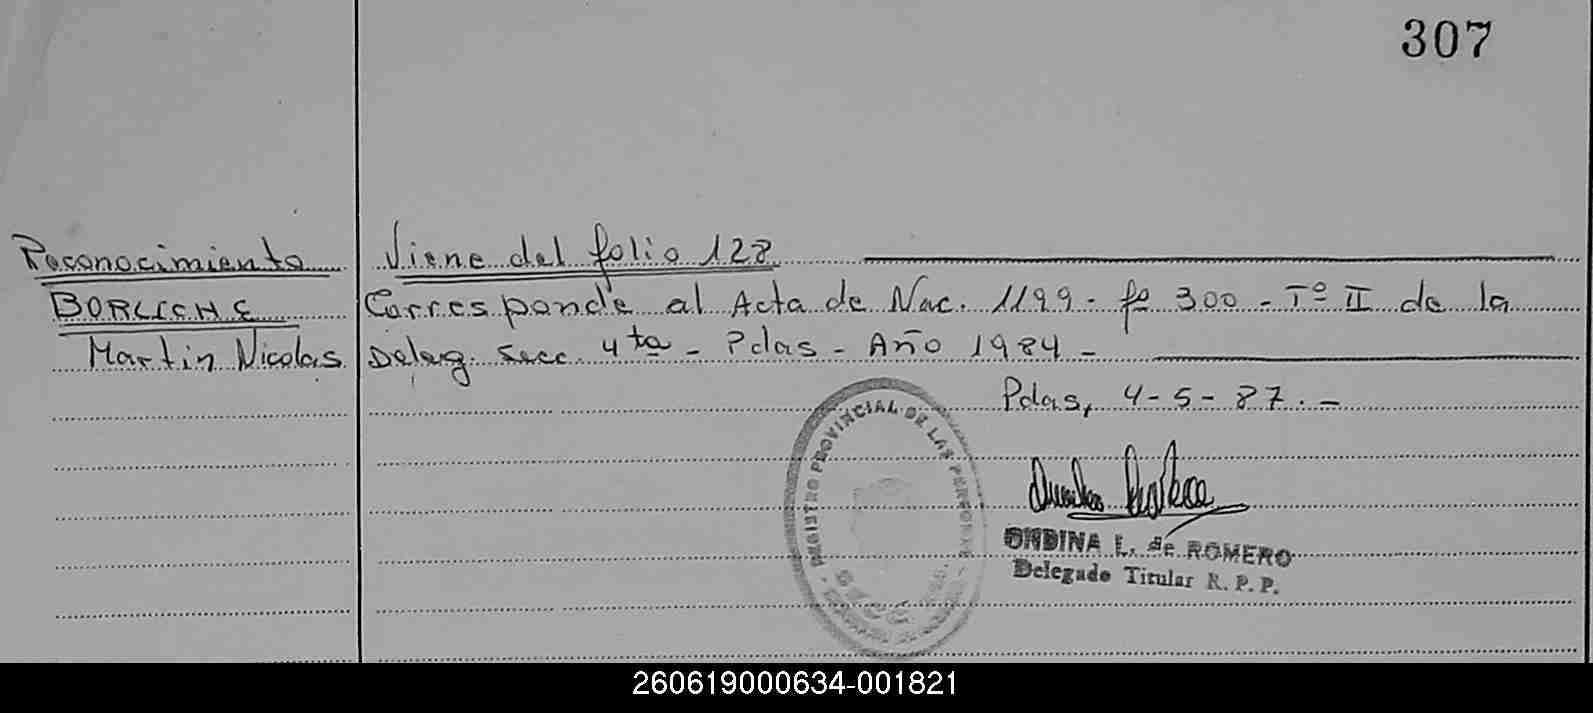 307
Reconocimiento
BORLICHE
Martin Nicolas
Viene del folio 128
Corresponde al Acta de Nac. 1199 - fº 300 - Tº II de la
Deleg. Secc. 4ta - Pdas - Año 1984 -
Pdas, 4-5-87.-
REGISTRO PROVINCIAL DE LAS PERSONAS
ONDINA L. de ROMERO
Delegado Titular R. P. P.
260619000634-001821